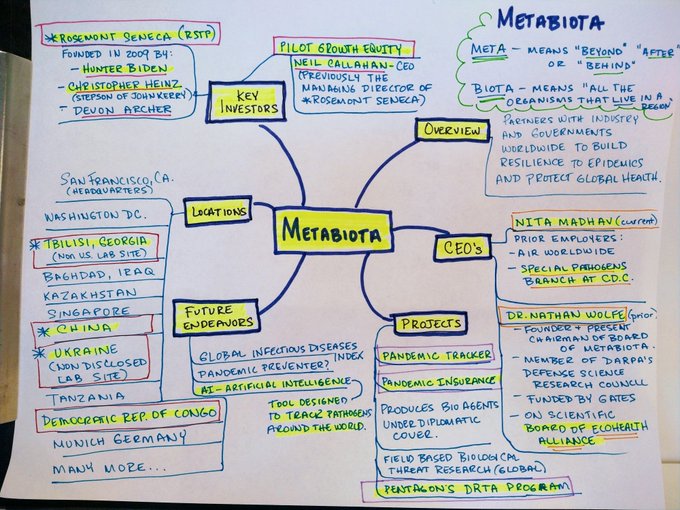 METABIOTA
META - MEANS "BEYOND" "AFTER"
OR "BEHIND"
BIOTA - MEANS "ALL THE
ORGANISMS THAT LIVE IN A
REGION"
* ROSEMONT SENECA (RSTP)
FOUNDED IN 2009 BY:
- HUNTER BIDEN
- CHRISTOPHER HEINZ
(STEPSON OF JOHN KERRY)
- DEVON ARCHER
KEY
INVESTORS
PILOT GROWTH EQUITY
NEIL CALLAHAN - CEO
(PREVIOUSLY THE
MANAGING DIRECTOR OF
*ROSEMONT SENECA)
OVERVIEW
PARTNERS WITH INDUSTRY
AND GOVERNMENTS
WORLDWIDE TO BUILD
RESILIENCE TO EPIDEMICS
AND PROTECT GLOBAL HEALTH.
METABIOTA
LOCATIONS
SAN FRANCISCO, CA.
(HEADQUARTERS)
WASHINGTON DC.
* TBILISI, GEORGIA
(NON U.S. LAB SITE)
BAGHDAD, IRAQ
KAZAKHSTAN
SINGAPORE
* CHINA
* UKRAINE
(NON DISCLOSED
LAB SITE)
TANZANIA
DEMOCRATIC REP. OF CONGO
MUNICH GERMANY
MANY MORE...
CEO's
NITA MADHAV (current)
PRIOR EMPLOYERS:
- AIR WORLDWIDE
- SPECIAL PATHOGENS
BRANCH AT C.D.C.
DR. NATHAN WOLFE (prior)
- FOUNDER + PRESENT
CHAIRMAN OF BOARD
OF METABIOTA.
- MEMBER OF DARPA'S
DEFENSE SCIENCE
RESEARCH COUNCIL
- FUNDED BY GATES
- ON SCIENTIFIC
BOARD OF ECOHEALTH
ALLIANCE
FUTURE
ENDEAVORS
GLOBAL INFECTIOUS DISEASES
INDEX
PANDEMIC PREVENTER?
AI - ARTIFICIAL INTELLIGENCE
TOOL DESIGNED
TO TRACK PATHOGENS
AROUND THE WORLD.
PROJECTS
PANDEMIC TRACKER
PANDEMIC INSURANCE
PRODUCES BIO AGENTS
UNDER DIPLOMATIC
COVER.
FIELD BASED BIOLOGICAL
THREAT RESEARCH (GLOBAL)
PENTAGON'S DRTA PROGRAM